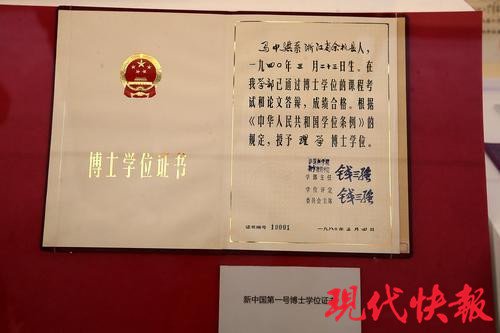 博士学位证书
马中骐系浙江省余杭县人，
一九四〇年三月二十三日生。在
我学部已通过博士学位的课程考
试和论文答辩，成绩合格。根据
《中华人民共和国学位条例》的
规定，授予理学博士学位。
学部主任 钱三强
学位评定
委员会主席 钱三强
证书编号 10001
新中国第一号博士学位证
现代快报